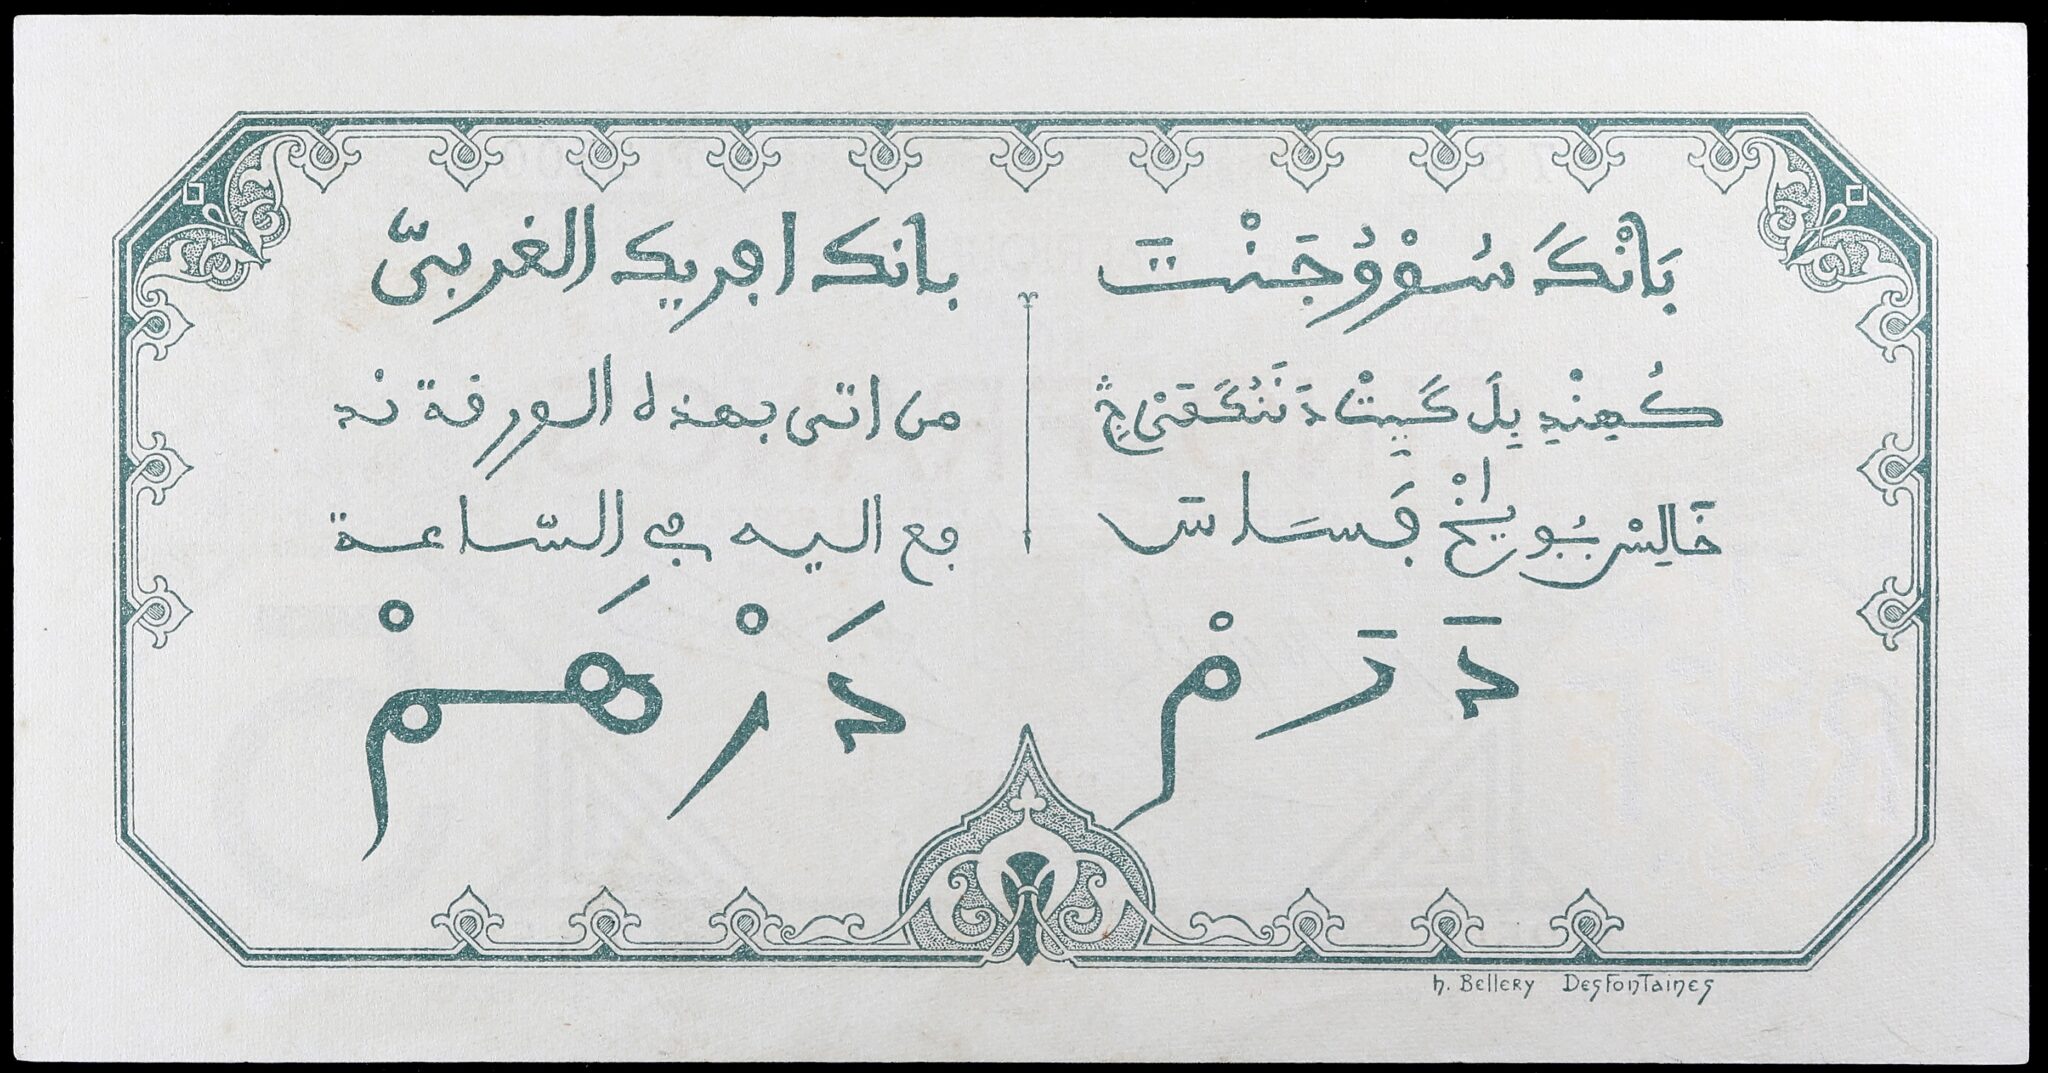 بَانْكَ سُوْوُجَنْتَ
كُهِنْدِ بِلَ كَيِتْ دَنَنُكَڢَىْ
خَالِسْ
دَرَمْ
بانك اڢريك الغربيّ
من اتى بهذه الورڧة ند
ڢع اليه ڢي السّاعة
دَرْهَمْ
h. Bellery Desfontaines